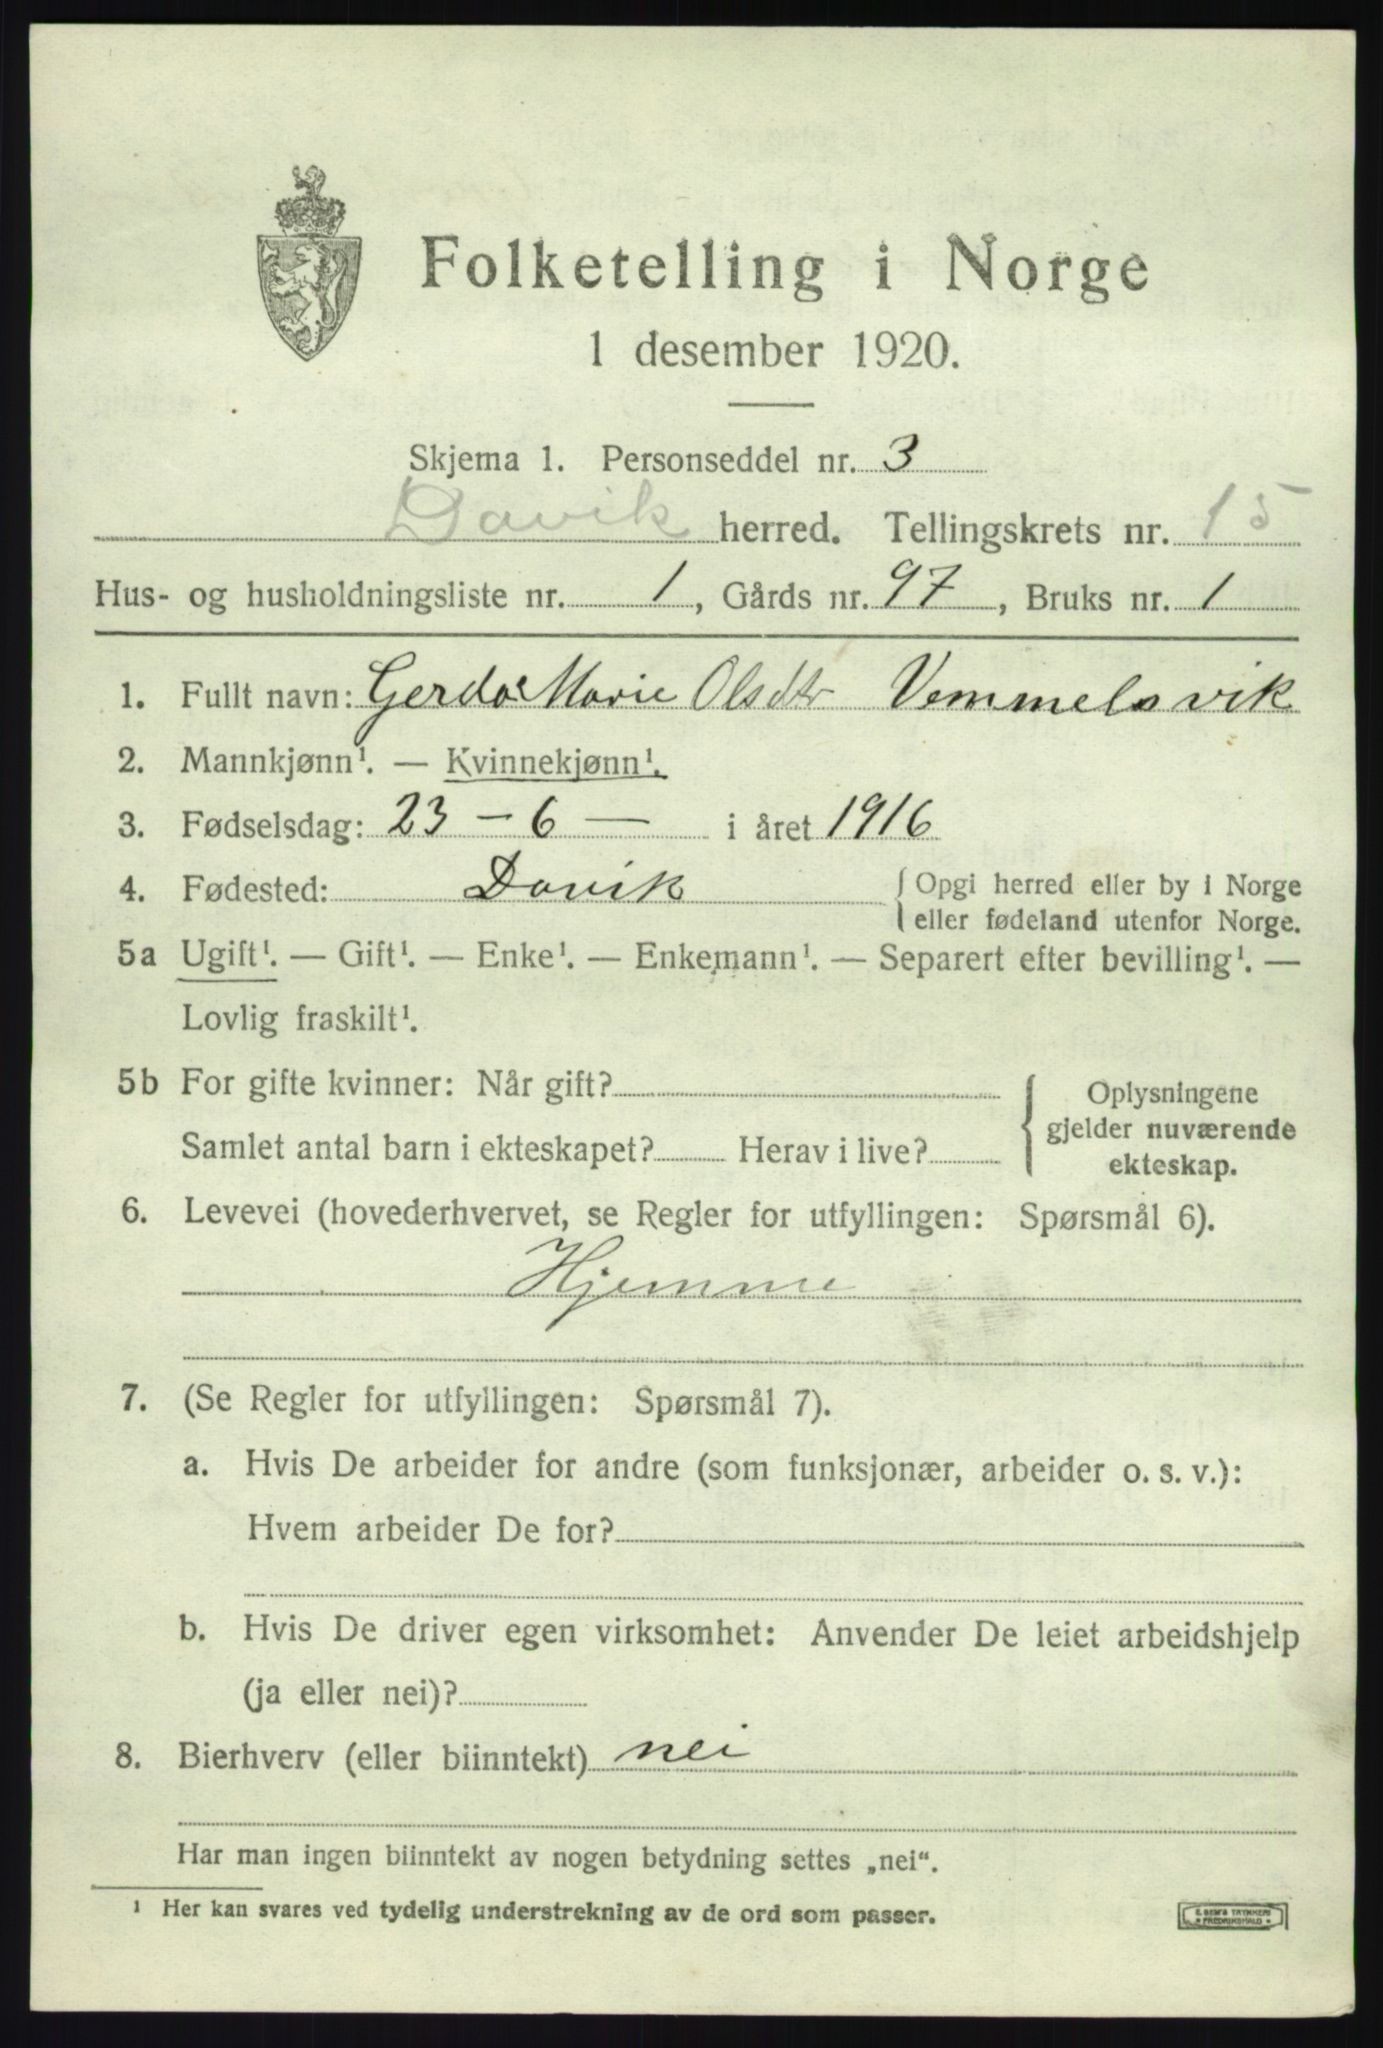 Folketelling i Norge
1 desember 1920.
Skjema 1. Personseddel nr. 3
Davik herred. Tellingskrets nr. 15
Hus- og husholdningsliste nr. 1, Gårds nr. 97, Bruks nr. 1
1. Fullt navn: Gerda Marie Olsdtr Vemmelsvik
2. Mannkjønn¹. — Kvinnekjønn¹.
3. Fødselsdag: 23 - 6 — i året 1916
4. Fødested: Davik { Opgi herred eller by i Norge
eller fødeland utenfor Norge.
5a Ugift¹. — Gift¹. — Enke¹. — Enkemann¹. — Separert efter bevilling¹. —
Lovlig fraskilt¹.
5b For gifte kvinner: Når gift? { Oplysningene
gjelder nuværende
Samlet antal barn i ekteskapet? Herav i live?
ekteskap.
6. Levevei (hovederhvervet, se Regler for utfyllingen: Spørsmål 6).
Hjemme
7. (Se Regler for utfyllingen: Spørsmål 7).
a. Hvis De arbeider for andre (som funksjonær, arbeider o. s. v.):
Hvem arbeider De for?
b. Hvis De driver egen virksomhet: Anvender De leiet arbeidshjelp
(ja eller nei)?
8. Bierhverv (eller biinntekt) nei
Har man ingen biinntekt av nogen betydning settes „nei“.
¹ Her kan svares ved tydelig understrekning av de ord som passer.